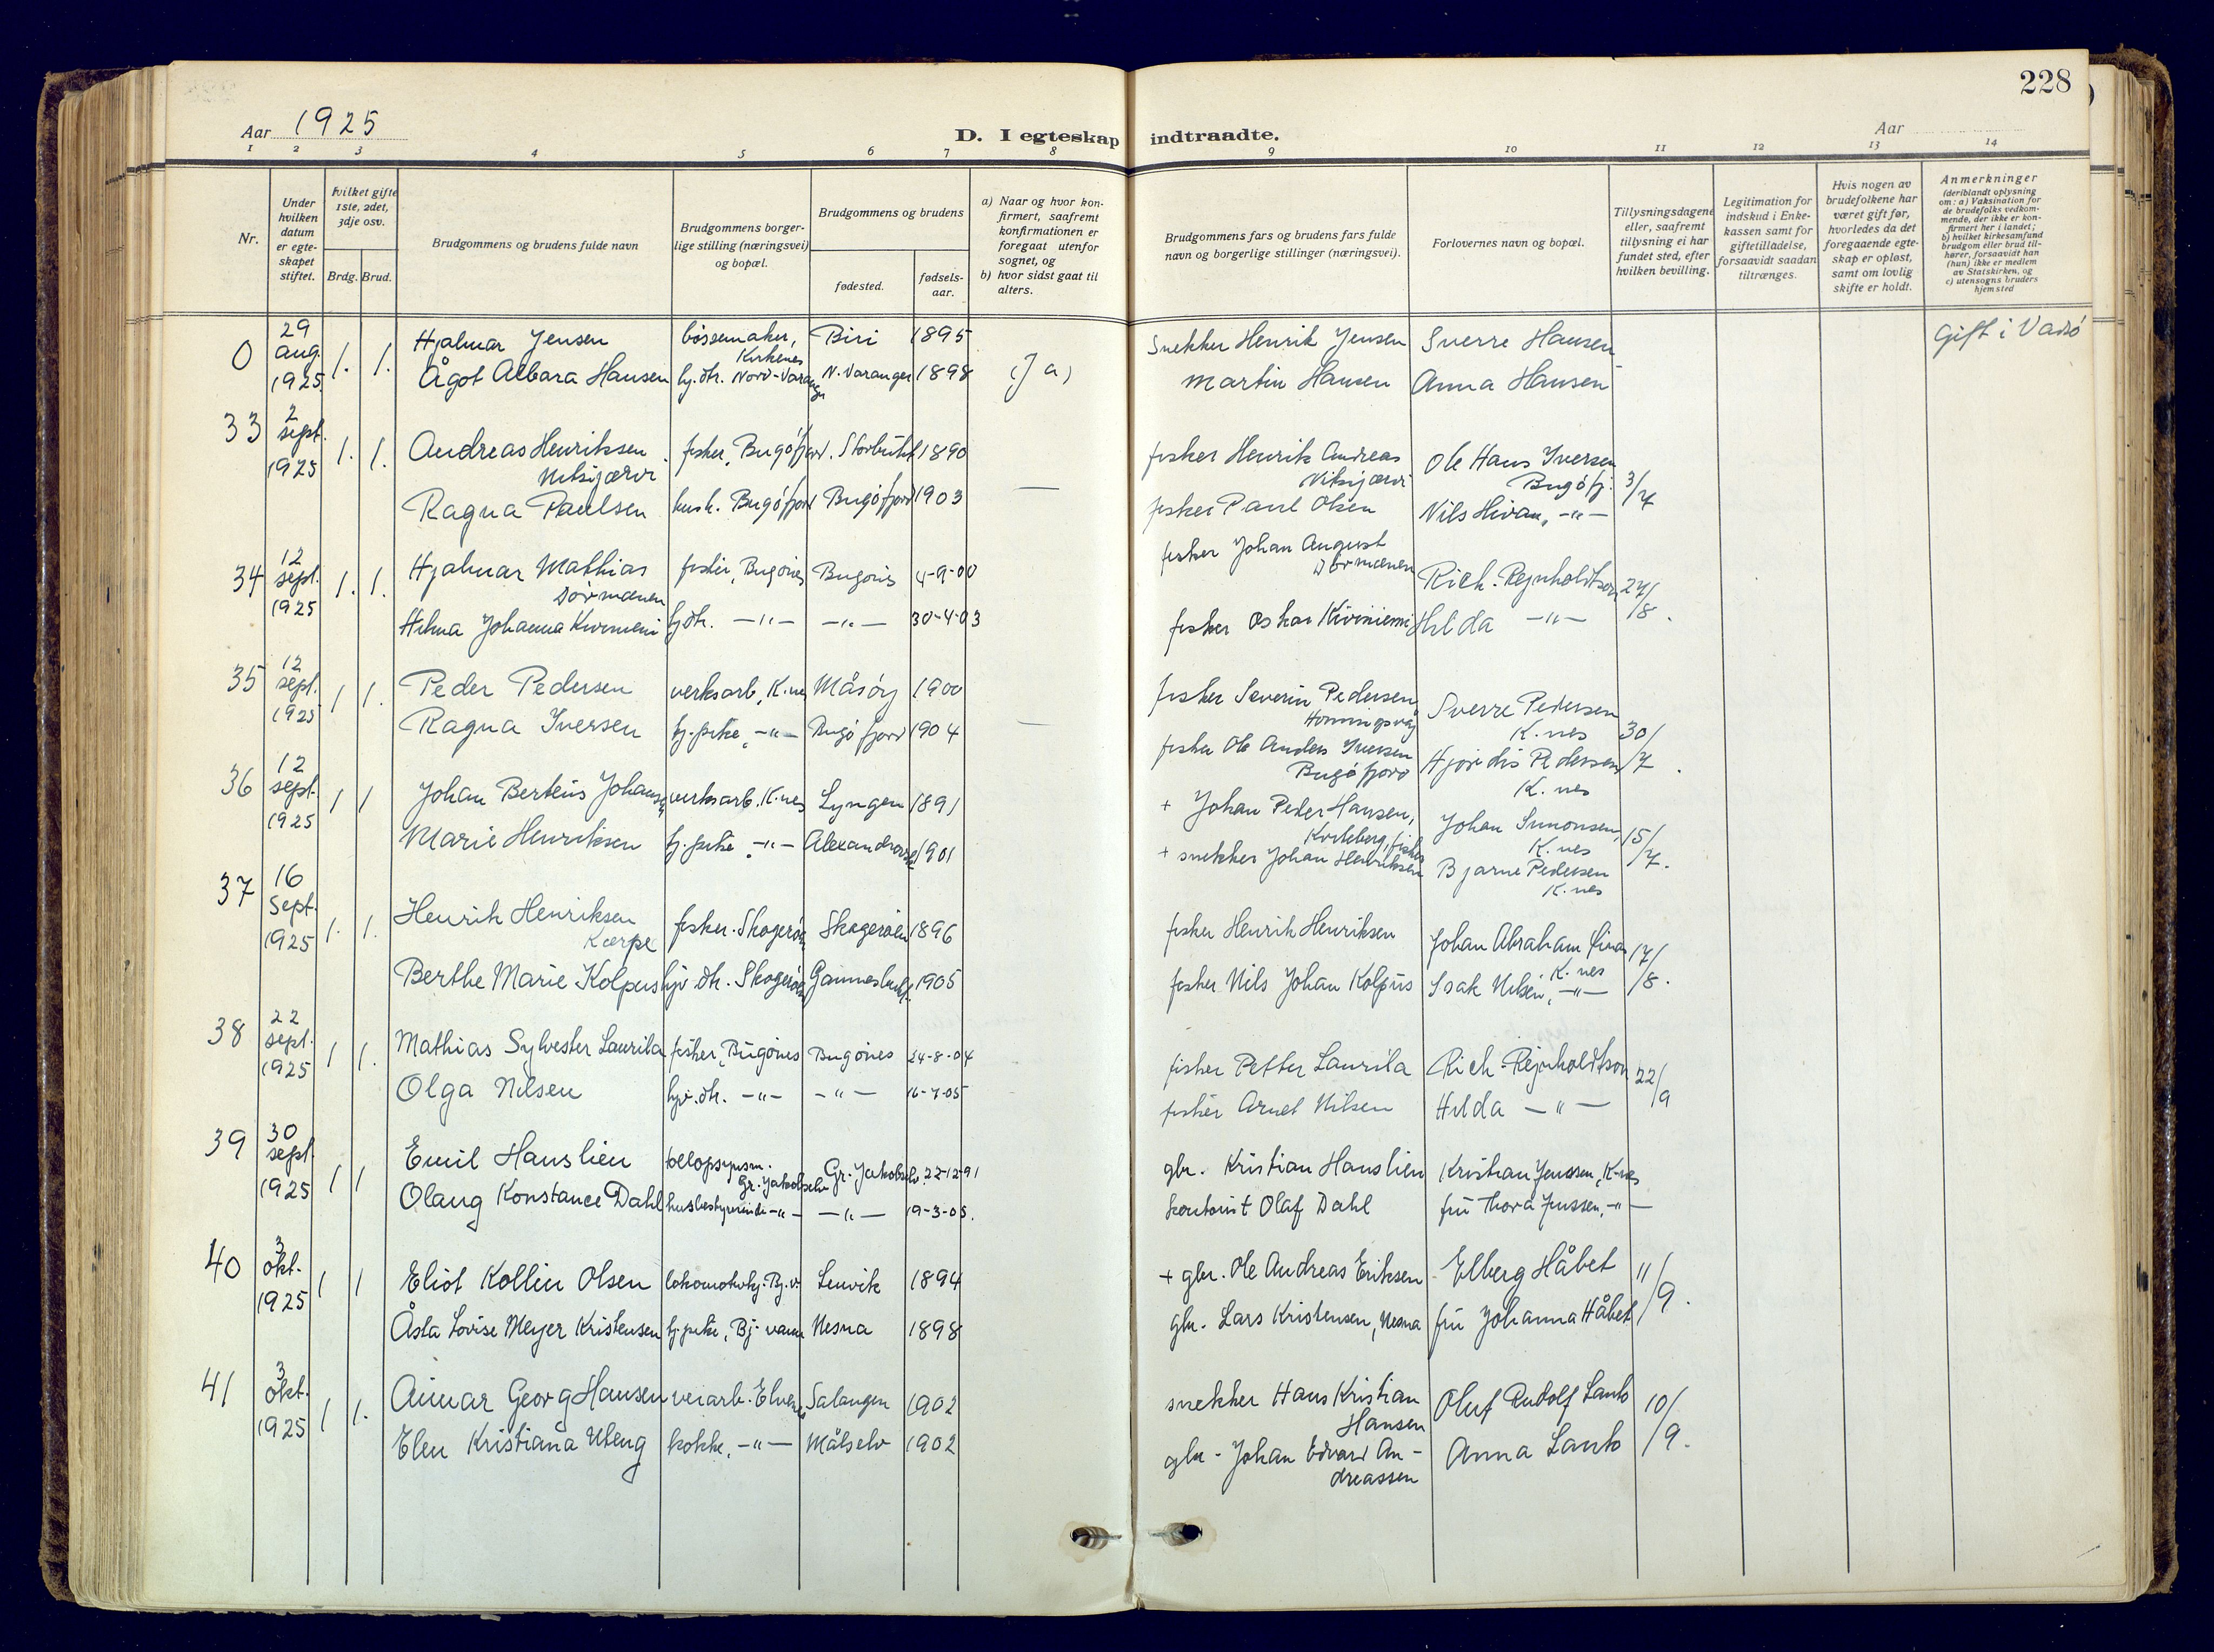 228
Aar 1925
D. I egteskap indtraadte.
Aar
1 2 3 4 5 6 7 8 9 10 11 12 13 14
Nr.
Under hvilken datum er egteskapet stiftet.
hvilket gifte 1ste, 2det, 3dje osv.
Brdg. Brud.
Brudgommens og brudens fulde navn
Brudgommens borgerlige stilling (næringsvei) og bopæl.
Brudgommens og brudens
fødested.
fødsels-aar.
a) Naar og hvor konfirmert, saafremt konfirmationen er foregaat utenfor sognet, og
b) hvor sidst gaat til alters.
Brudgommens fars og brudens fars fulde navn og borgerlige stillinger (næringsvei).
Forlovernes navn og bopæl.
Tillysningsdagene eller, saafremt tillysning ei har fundet sted, efter hvilken bevilling.
Legitimation for indskud i Enkekassen samt for giftetilladelse, forsaavidt saadan tiltrænges.
Hvis nogen av brudefolkene har været gift før, hvorledes da det foregaaende egteskap er opløst, samt om lovlig skifte er holdt.
Anmerkninger
(deriblandt oplysning om: a) Vaksination for de brudefolks vedkommende, der ikke er konfirmert her i landet; b) hvilket kirkesamfund brudgom eller brud tilhører, forsaavidt han (hun) ikke er medlem av Statskirken, og c) utensogns bruders hjemsted
0 29 aug. 1925 1. 1. Hjalmar Jensen bøssemaker, Kirkenes Biri 1895 Snekker Henrik Jensen Sverre Hansen Gift i Vadsö
Ågot Albara Hansen hj.dtr. Nord-Varanger N. Varanger 1898 (Ja) Martin Hansen Anna Hansen
33 2 sept. 1925 1. 1. Andreas Henriksen Nitsijærvi fisker, Bugöfjord. Storbukt 1890 fisker Henrik Andreas Nitsijærvi Ole Hans Iversen Bugöfj. 3/7
Ragna Paulsen hush. Bugöfjord Bugöfjord 1903 — fisker Paul Olsen Nils Hivan, -"-
34 12 sept. 1925 1. 1. Hjalmar Mathias Dörmænen fisker, Bugönes Bugönes 4-9-00 fisker Johan August Dörmænen Rich. Rejnholdtson 27/8.
Helma Johanna Kiviniemi hj.dtr. -"- -"- 30-4-03 fisker Oskar Kiviniemi Hilda -"-
35 12 sept. 1925 1 1. Peder Pedersen verksarb, K.nes Måsöy 1900 fisker Severin Pedersen, Honningsvåg Sverre Pedersen K.nes 30/7.
Ragna Iversen hj.pike, -"- Bugöfjord 1904 — fisker Ole Anders Iversen Bugöfjord Hjördis Pedersen K.nes
36 12 sept. 1925 1 1 Johan Berteus Johansen verksarb. K.nes Lyngen 1891 + Johan Peder Hansen, Kvileberg, fisker Johan Simonsen, K.nes 15/7.
Marie Henriksen hj.pike -"- 1901 + snekker Johan Henriksen Bjarne Pedersen K.nes
37 16 Sept. 1925 1. 1. Henrik Henriksen Karpe fisker. Skogeröy Skogeröen 1896 fisker Henrik Henriksen Johan Abraham K.nes 17/8.
Berthe Marie Kolpus hjv.dtr. Skogeröy 1905 fisker Nils Johan Kolpus Isak Nilsen, -"-
38 22 sept. 1925 1 1. Mathias Sylvester Laurila fisker, Bugönes Bugönes 24-8-04 fisker Petter Laurila Rich. Rejnholdtson 22/9
Olga Nilsen hjv.dtr. -"- -"- 16-7-05 fisker Arnet Nilsen Hilda -"-
39 30 sept. 1925 1 1 Emil Hanslien tollopsynsm. Gr. Jakobselv Gr. Jakobselv. 22-12-91 gbr. Kristian Hanslien Kristian Jenssen, K-nes
Olaug Konstance Dahl husbestyrerinde -"- -"- 19-3-05. kontorist Olaf Dahl fru Thora Jenssen, -"-
40 3 okt. 1925 1 1 Eliot Kollin Olsen lokomotivkj. Bj.v. Lenvik 1894 + gbr. Ole Andreas Eriksen Elberg Håbet 11/9.
Åsta Lovise Meyer Kristensen hj.pike, Bj.vann Nesna 1898 gbr. Lars Kristensen, Nesna fru Johanna Håbet
41 3 okt. 1925 1 1. Aimar Georg Hansen veiarb. Elvenes Salangen 1902 snekker Hans Kristian Hansen Oluf Rudolf Lanto 10/9.
Elen Kristiana Uteng kokke, -"- Målselv 1902 gbr. Johan Edvard Andreassen Anna Lanto